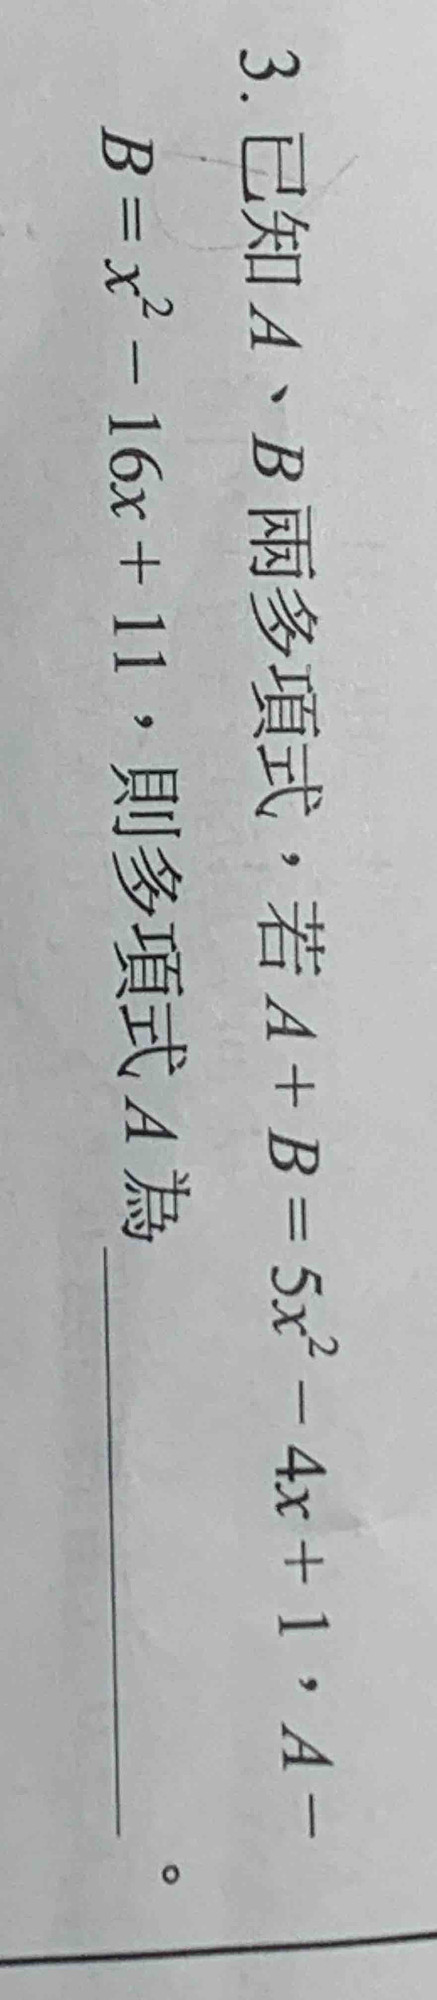 3. 已知 A、B 兩多項式，若 A + B = 5x² − 4x + 1，A −
B = x² − 16x + 11，則多項式 A 為＿＿＿＿＿＿。